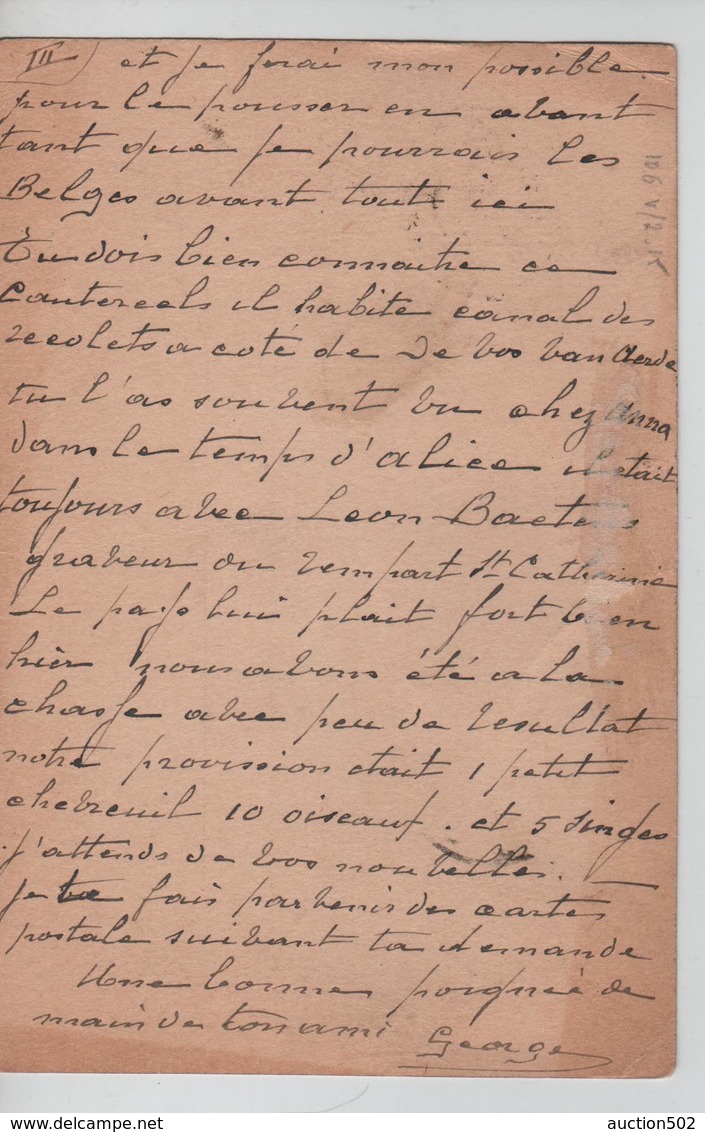 III) et je ferai mon possible.
pour le pousser en avant
tant que je pourrais les
Belges avant tout ici
Tu dois bien connaitre ce
Cautereels il habite canal des
recolets a coté de De Vos Van Aerde
tu l'as souvent vu chez Anna
dans le temps d'alice il était
toujours avec Leon Baetens
graveur du rempart St Catherine
Le pays lui plait fort bien
hier nous avons été a la
chasse avec peu de resultat
notre provission était 1 petit
chevreuil 10 oiseaux. et 5 singes
j'attends de vos nouvelles. —
je te fais parvenir des cartes
postale suivant ta demande
Une bonne poignée de
main de ton ami George
auction502